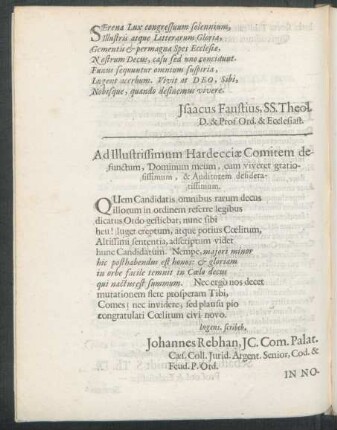 SErena Lux congressuum solennium,
Illustris atque Litterarum Gloria,
Gementis & permagna Spes Ecclesiæ,
Nostrum Decus, casu sed uno concidunt.
Funus sequuntur omnium suspiria,
Lugent acerbum. Vivit at DEO, Sibi,
Nobisque, quando desinemus vivere.
Isaacus Faustius, SS. Theol.
D. & Prof. Ord. & Ecclesiast.
Ad Illustrissimum Hardecciæ Comitem de-
functum, Dominum meum, cum viveret gratio-
sissimum, & Auditorem desidera-
tissimum.
QUem Candidatis omnibus rarum decus
illorum in ordinem referre legibus
dicatus Ordo gestiebat, nunc sibi
heu! luget ereptum, atque potius Cœlitum,
Altissimi sententia, adscriptum videt
hunc Candidatum. Nempe, majori minor
hic posthabendus est honos: & gloriam
in orbe facile temnit in Cœlo decus
qui nactus est summum. Nec ergò nos decet
mutationem flere prosperam Tibi,
Comes; nec invidere, sed plausu pio
congratulari Cœlitum civi novo.
lugens scribeb,
Johannes Rebhan, JC. Com. Palat.
Cæs. Coll. Jurid. Argent. Senior, Cod. &
Feud. P. Ord.
IN NO-